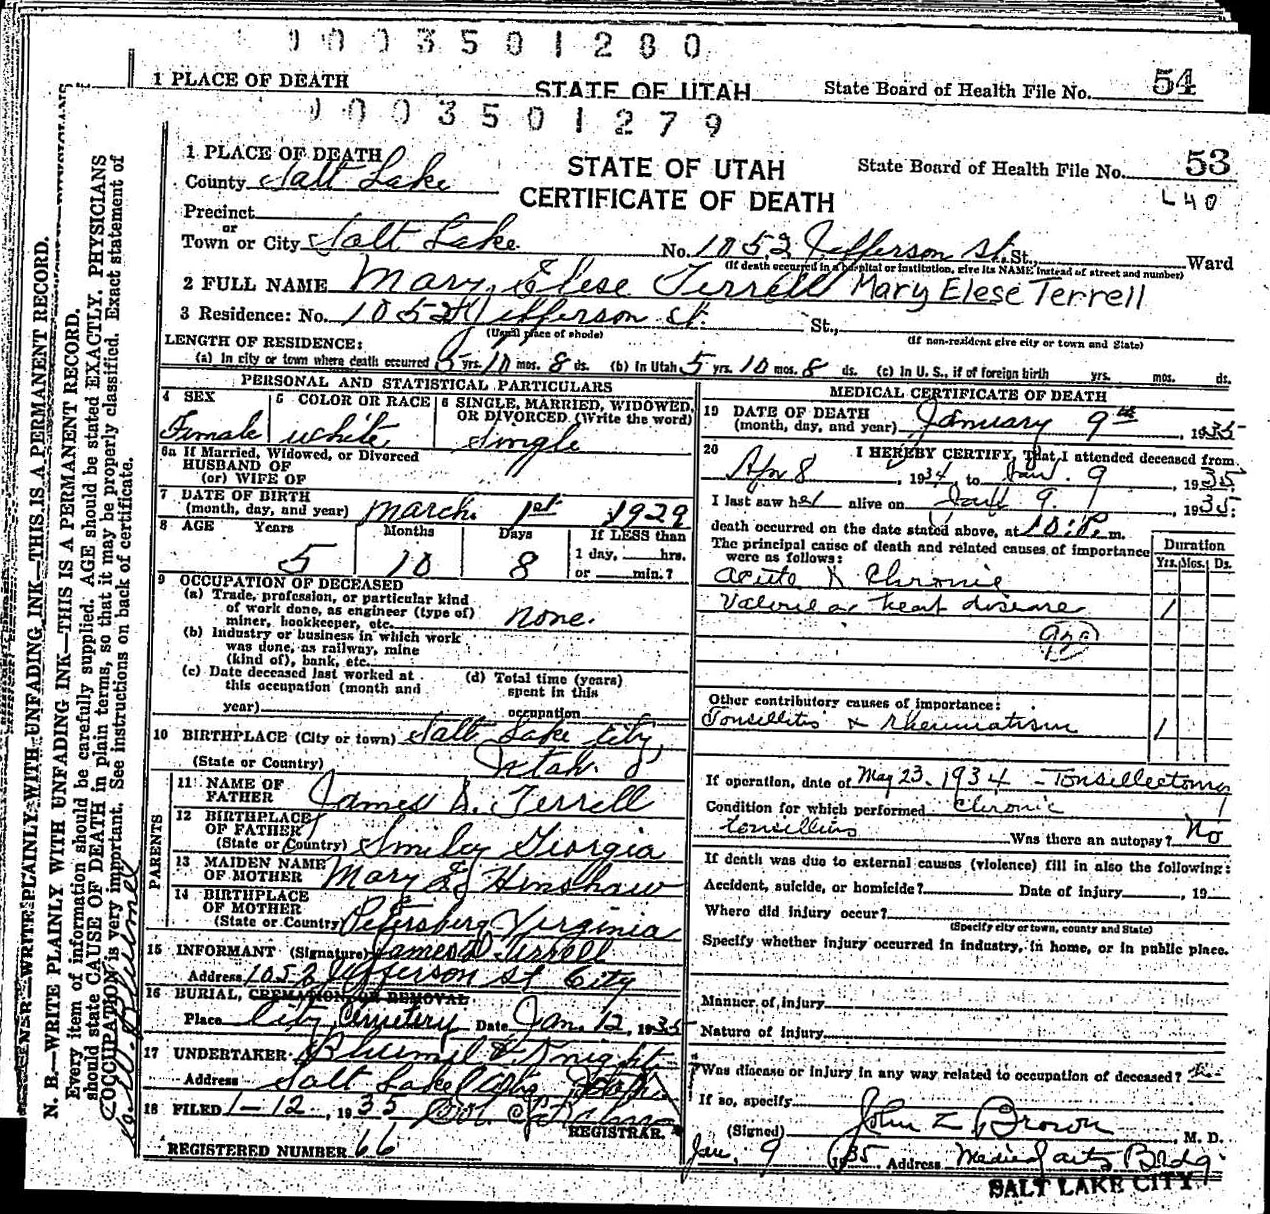 0003501280
1 PLACE OF DEATH STATE OF UTAH State Board of Health File No. 54
0003501279
1 PLACE OF DEATH STATE OF UTAH State Board of Health File No. 53
County Salt Lake CERTIFICATE OF DEATH L40
Precinct
or
Town or City Salt Lake No. 1052 Jefferson St. St., Ward
(If death occurred in a hospital or institution, give its NAME instead of street and number)
2 FULL NAME Mary Elese Terrell Mary Elese Terrell
3 Residence: No. 1052 Jefferson St. St.,
(Usual place of abode) (If non-resident give city or town and State)
LENGTH OF RESIDENCE:
(a) In city or town where death occurred 5 yrs. 10 mos. 8 ds. (b) In Utah 5 yrs. 10 mos. 8 ds. (c) In U. S., if of foreign birth yrs. mos. ds.
PERSONAL AND STATISTICAL PARTICULARS
4 SEX 5 COLOR OR RACE 6 SINGLE, MARRIED, WIDOWED,
OR DIVORCED (Write the word)
Female white Single
6a If Married, Widowed, or Divorced
HUSBAND OF
(or) WIFE OF
7 DATE OF BIRTH
(month, day, and year) March 1st 1929
8 AGE Years Months Days If LESS than
1 day, hrs.
5 10 8 or min.?
9 OCCUPATION OF DECEASED
(a) Trade, profession, or particular kind
of work done, as engineer (type of)
miner, bookkeeper, etc. none.
(b) Industry or business in which work
was done, as railway, mine
(kind of), bank, etc.
(c) Date deceased last worked at (d) Total time (years)
this occupation (month and spent in this
year) occupation
10 BIRTHPLACE (City or town) Salt Lake City,
(State or Country) Utah.
PARENTS
11 NAME OF
FATHER James D. Terrell
12 BIRTHPLACE
OF FATHER
(State or Country) Smiley Georgia
13 MAIDEN NAME
OF MOTHER Mary E. Hinshaw
14 BIRTHPLACE
OF MOTHER
(State or Country) Petersberg Virginia
15 INFORMANT (Signature) James D Terrell
Address 1052 Jefferson St City
16 BURIAL, CREMATION, OR REMOVAL
Place City Cemetery Date Jan. 12, 1935
17 UNDERTAKER Knight
Address Salt Lake City
18 FILED 1-12, 1935
REGISTRAR.
REGISTERED NUMBER 66
MEDICAL CERTIFICATE OF DEATH
19 DATE OF DEATH
(month, day, and year) January 9th, 1935
20 I HEREBY CERTIFY, That I attended deceased from
Apr 8, 1934, to Jan. 9, 1935
I last saw her alive on Jan 9, 1935:
death occurred on the date stated above, at 10:P.m.
The principal cause of death and related causes of importance Duration
were as follows: Yrs. Mos. Ds.
acute & Chronic
Valvular heart disease 1
92
Other contributory causes of importance:
Tonsillitis & rheumatism 1
If operation, date of May 23. 1934 - Tonsillectomy
Condition for which performed Chronic
tonsillitis Was there an autopsy? No
If death was due to external causes (violence) fill in also the following:
Accident, suicide, or homicide? Date of injury, 19
Where did injury occur?
(Specify city or town, county and State)
Specify whether injury occurred in industry, in home, or in public place.
Manner of injury
Nature of injury
Was disease or injury in any way related to occupation of deceased?
If so, specify
(Signed) John Z Brown, M. D.
Jan. 9 1935 Address Medical arts Bldg.
SALT LAKE CITY
N. B.—WRITE PLAINLY WITH UNFADING INK—THIS IS A PERMANENT RECORD.
N. B.—WRITE PLAINLY WITH UNFADING INK—THIS IS A PERMANENT RECORD.
Every item of information should be carefully supplied. AGE should be stated EXACTLY. PHYSICIANS
should state CAUSE OF DEATH in plain terms, so that it may be properly classified. Exact statement of
OCCUPATION is very important. See instructions on back of certificate.